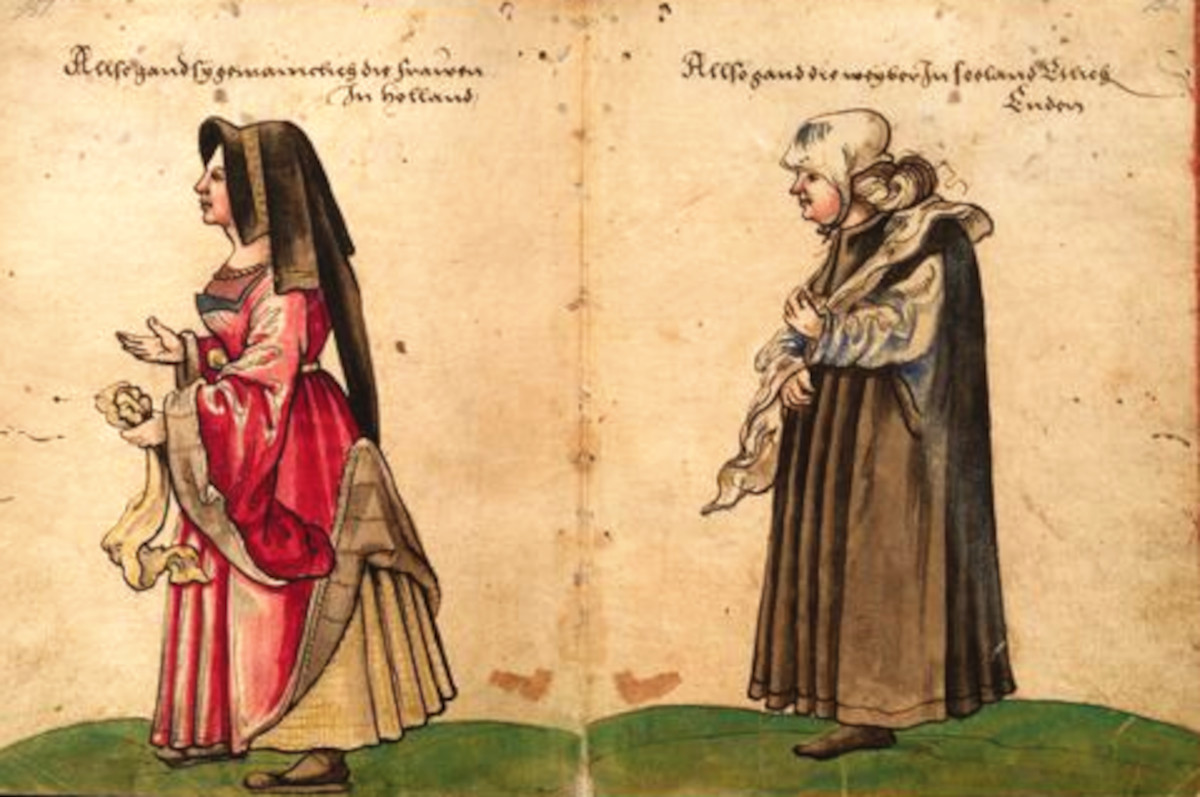 Allso gand sy gemainclich die frawen
In holland
Allso gand die weyber In seeland Etlich
Enden